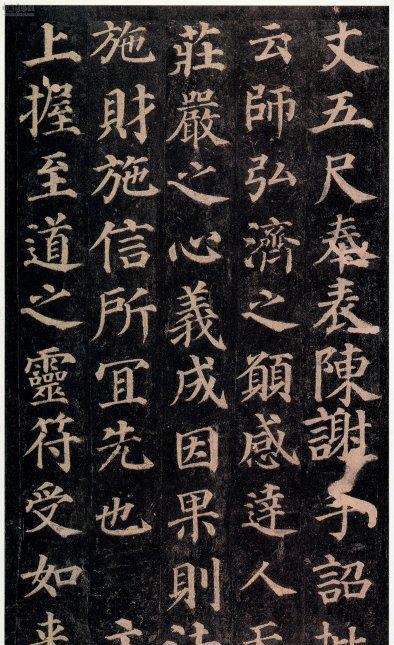 丈五尺奉表陳謝手詔批
云師弘濟之願感達人天
莊嚴之心義成因果則法
施財施信所宜先也
上握至道之靈符受如来